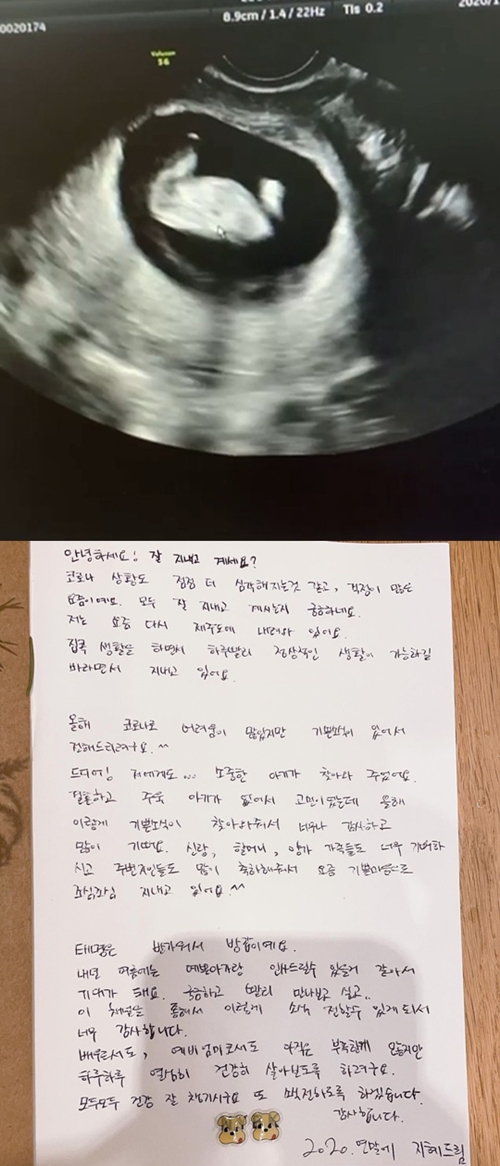 0020174
8.9cm / 1.4 / 22Hz Tls 0.2
Voluson
S6
안녕하세요! 잘 지내고 계세요?
코로나 상황도 점점 더 심각해지는것 같고, 걱정이 많은
요즘이에요. 모두 잘 지내고 계시는지 궁금하네요.
저는 요즘 다시 제주도에 내려와 있어요.
집콕 생활을 하면서 하루빨리 정상적인 생활이 가능하길
바라면서 지내고 있어요.
올해 코로나로 어려움이 많았지만 기쁜소식이 있어서
전해드리려구요.^^
드디어! 저에게도... 소중한 아기가 찾아와 주었어요.
결혼하고 주욱 아기가 없어서 고민이었는데 올해
이렇게 기쁜소식이 찾아와줘서 너무나 감사하고
많이 기뻐요. 신랑, 할머니, 양가 가족들도 너무 기뻐하
시고 주변지인들도 많이 축하해줘서 요즘 기쁜마음으로
조심조심 지내고 있어요^^
태명은 반가워서 방갑이예요.
내년 여름에는 예쁜아가랑 인사드릴수 있을거 같아서
기대가 돼요. 궁금하고 빨리 만나보고 싶고..
이 채널을 통해서 이렇게 소식 전할수 있게되서
너무 감사합니다.
배우로서도, 예비엄마로서도 아직은 부족한게 많지만
하루하루 열심히 건강히 살아보도록 하려구요.
모두모두 건강 잘 챙기시구요 또 소식전하도록 하겠습니다.
감사합니다.
2020. 연말에 지혜드림